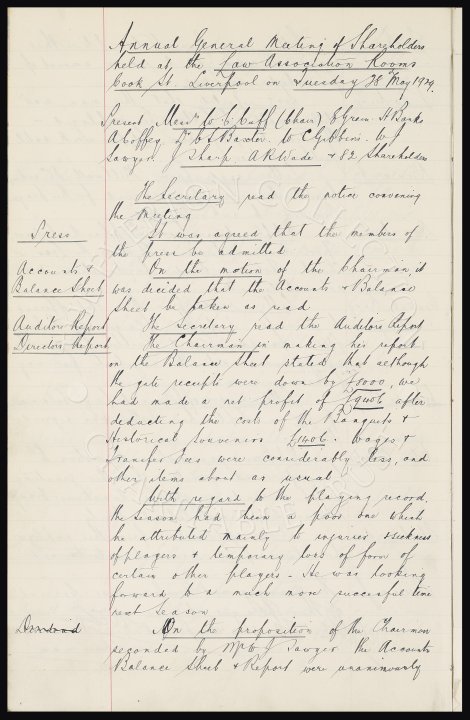 Annual General Meeting of Shareholders
held at the Law Association Rooms
Cook St. Liverpool on Tuesday 28th May 1929.
Present Messrs W. C. Cuff (Chair) E Green H Banks
A Coffey, Dr C S Baxter. W C Gibbins. W J
Sawyer J Sharp A R Wade & 82 Shareholders
The Secretary read the notice convening
the Meeting
Press
It was agreed that the members of
the press be admitted
Accounts & Balance Sheet
On the motion of the Chairman it
was decided that the Accounts & Balance
Sheet be taken as read
Auditors Report
The Secretary read the Auditors Report
Directors Report
The Chairman in making his report
on the Balance Sheet stated that although
the gate receipts were down by £8000, we
had made a net profit of £9406 after
deducting the costs of the Banquets &
Historical Souvenirs £1406. Wages &
Transfer Fees were considerably less, and
other items about as usual
With regard to the playing record,
the season had been a poor one which
he attributed mainly to injuries & sickness
of players & temporary loss of form of
certain other players - He was looking
forward to a much more succesful time
next season
Dividend
On the proposition of the Chairman
seconded by Mr W J Sawyer the Accounts
Balance Sheet & Report were unanimously